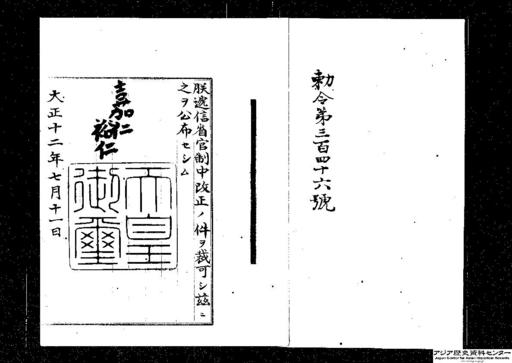 勅令第三百四十六號
朕遞信省官制中改正ノ件ヲ裁可シ茲ニ
之ヲ公布セシム
嘉仁
裕仁
天皇御璽
大正十二年七月十一日
アジア歴史資料センター
Japan Center for Asian Historical Records